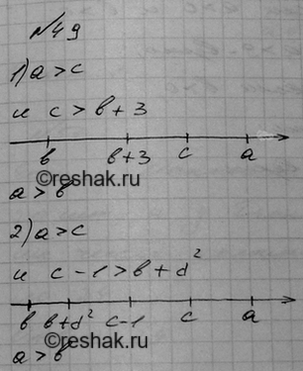 №49
1) a > c
и c > в + 3
в в+3 c a
©reshak.ru
a > в
2) a > c
и c - 1 > в + d²
в в+d² c-1 c a
©reshak.ru
a > в